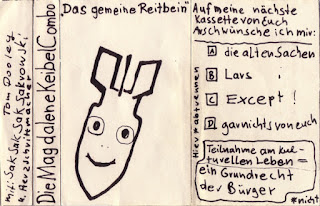 mit: Sak Sak Sak Sak Sakrowski
Tom Dooley
u. Herzschrittmacher
Die Magdalene Keibel Combo
„Das gemeine Reitbein"
Auf meine nächste
Kassette von Euch
wünsche ich mir:
A die alten Sachen
B Lars
C Except!
D garnichts von euch
Hier * abtrennen
Teilnahme am kul-
turellen Leben =
ein Grundrecht
der Bürger
*nicht